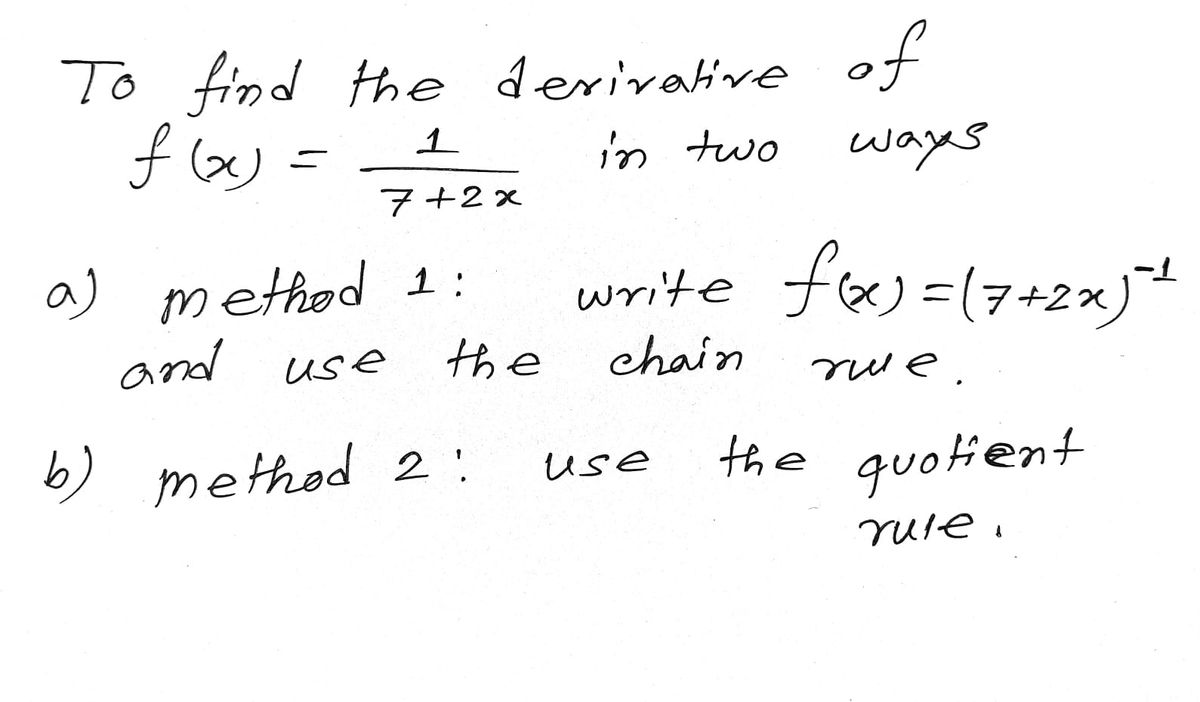 To find the derivative of
f(x) = 1/(7+2x) in two ways
a) method 1: write f(x) = (7+2x)^-1
and use the chain rule.
b) method 2: use the quotient
rule.